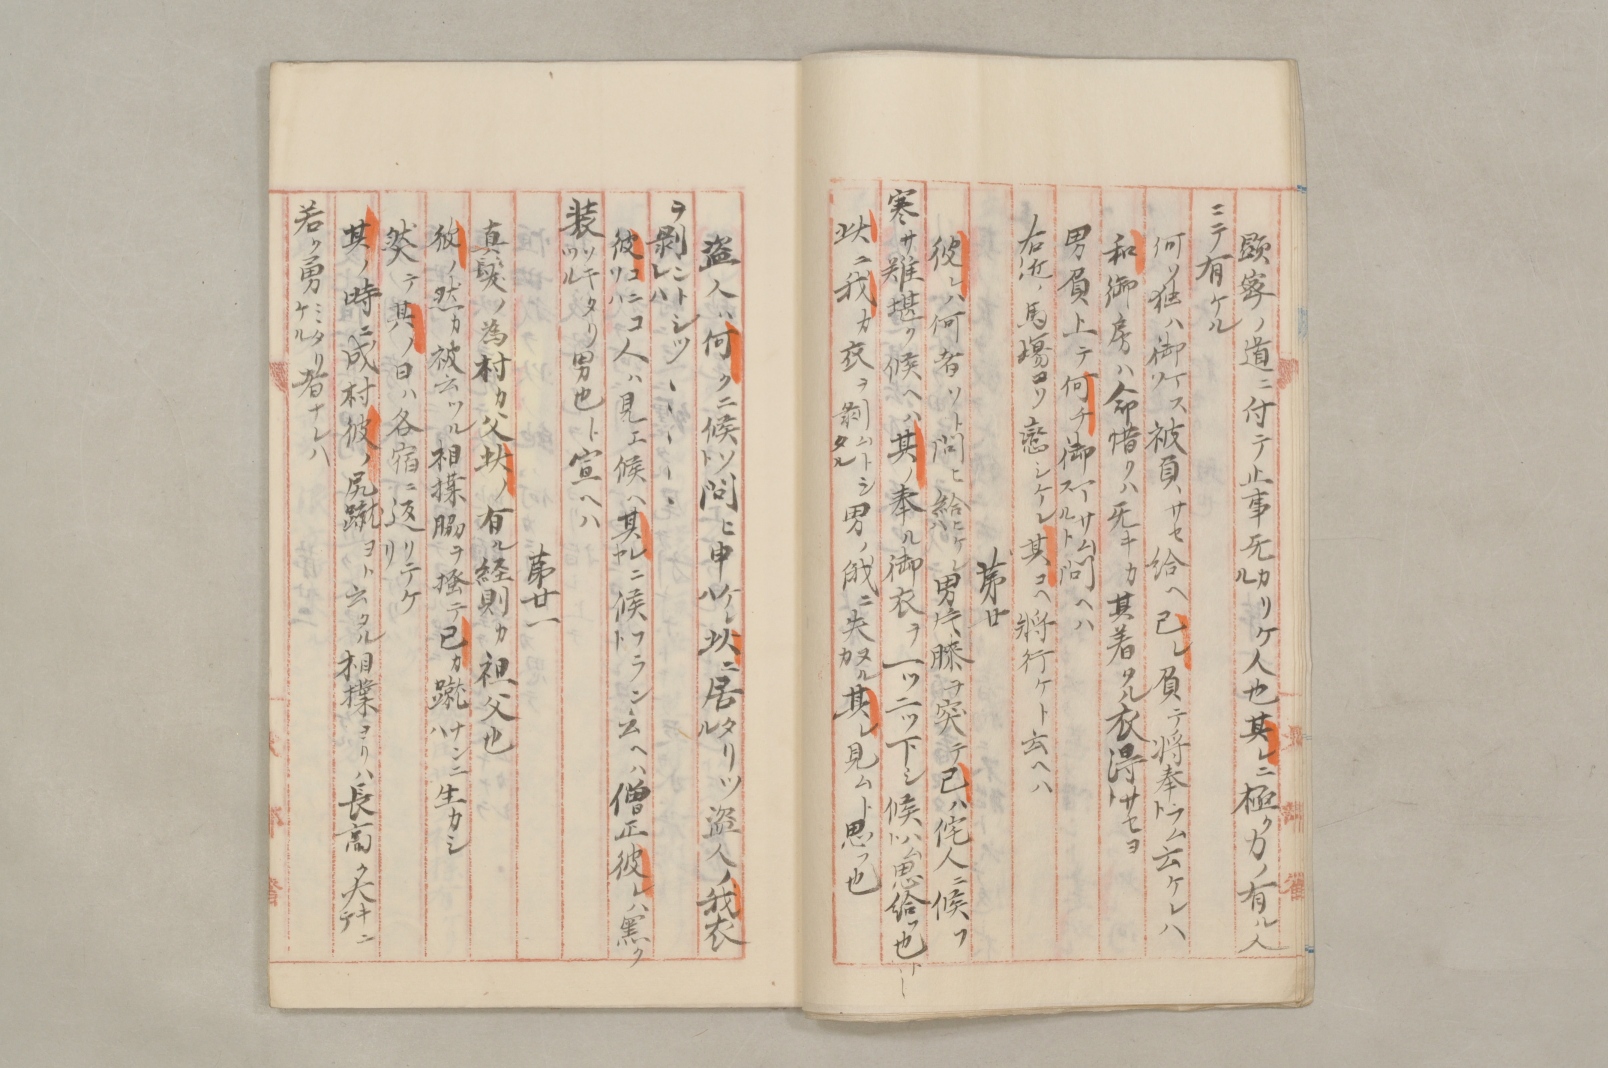 顕密ノ道ニ付テ止事无カリケル人也其レニ極ク力ノ有ル人
ニテ有ケル
何ソ独ハ御ケソ被負サセ給ヘ己レ負テ将奉ラムト云ケレハ
和御房ハ命惜クハ无キカ其着タル衣得サセヨ
男負上テ何チ御マサムスルト問ヘハ
右近ノ馬場ヨリ恋シケレ其コヘ将行ケト云ヘハ
第廿
彼レハ何者ソト問ヒ給ヒケレハ男片膝ヲ突テ己ハ侘人ニ候フ
寒サ難堪ク候ヘハ其ノ奉ル御衣ヲ一ツ二ツ下シ候ハムト思給フ也ト
此ニ我カ衣ヲ剥ムトシタル男ノ俄ニ失ヌルカ其レ見ムト思フ也
盗人ハ何クニ候トソ問ヒ申ケレハ此ニ居タリツル盗人ノ我衣
ヲ剥ントシツレハ
彼コニコソ人ハ見エ候ヘ其レニヤ候フラント云ヘハ僧正彼レハ黒ク
装ツキタリツル男也ト宣ヘハ
第廿一
真髪ノ為村カ父此ノ有ル経則カ祖父也
彼ノ然カ被云ツル相撲脇ヲ掻テ己カ蹴ハナンニ生カシ
然テ其ノ日ハ各宿ニ返リニケリ
其ノ時ニ成村彼ノ尻蹴ヨト云タル相撲ヨリハ長高ク大キニテ
若ク勇ミタリケル者ナレハ